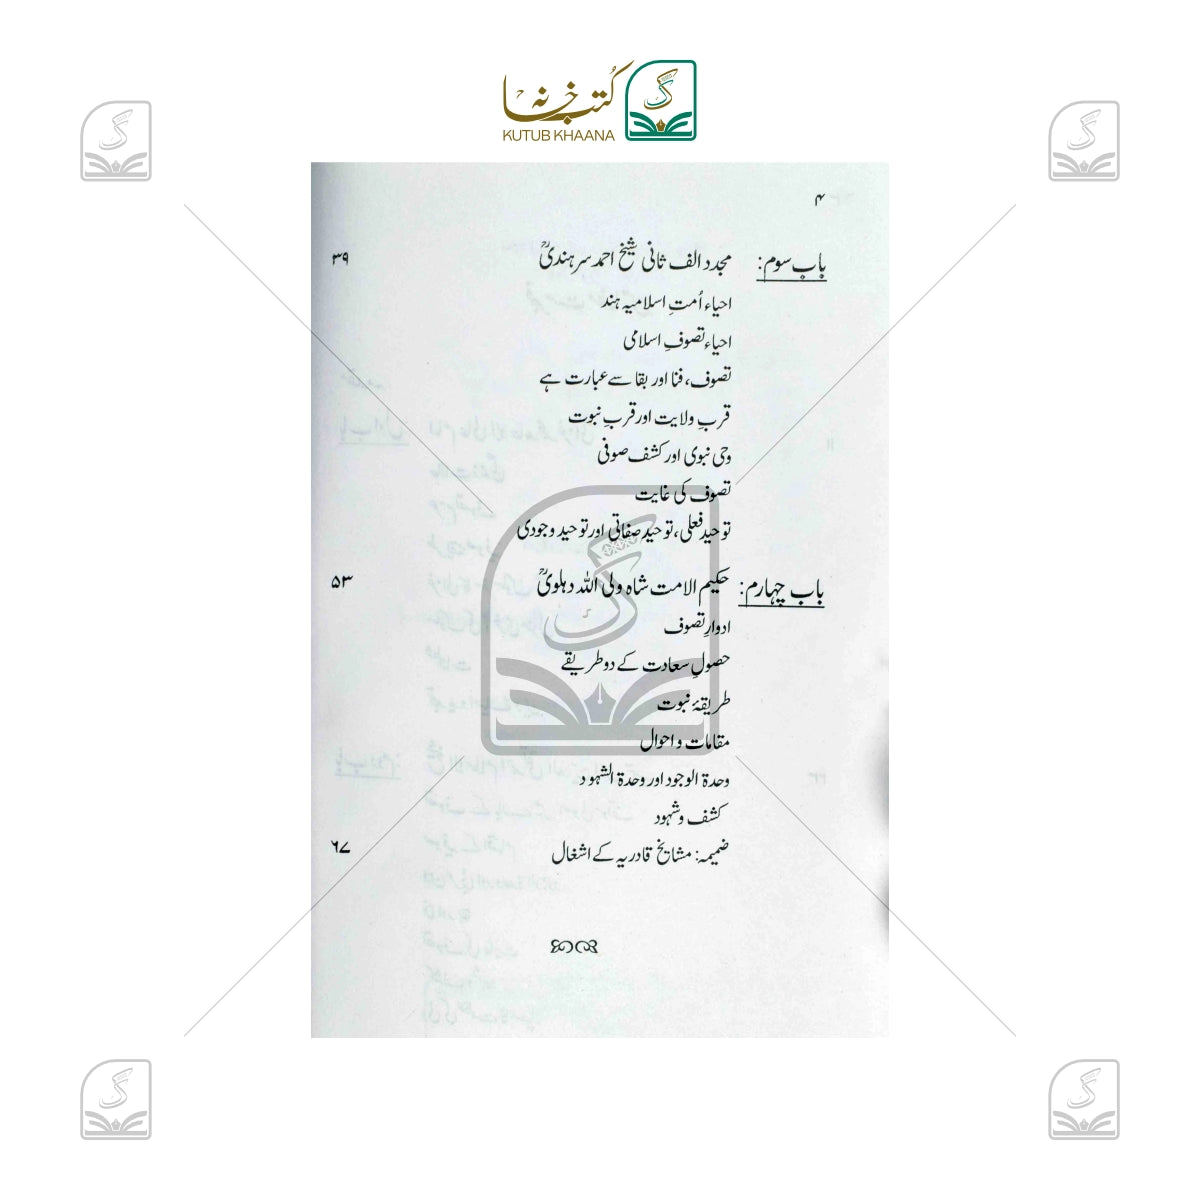 کتب خانہ
KUTUB KHAANA
۴
باب سوم: مجدد الف ثانی شیخ احمد سرہندیؒ ۳۹
احیاء اُمتِ اسلامیہ ہند
احیاء تصوفِ اسلامی
تصوف، فنا اور بقا سے عبارت ہے
قربِ ولایت اور قربِ نبوت
وحی نبوی اور کشف صوفی
تصوف کی غایت
توحیدِ فعلی، توحیدِ صفاتی اور توحیدِ وجودی
باب چہارم: حکیم الامت شاہ ولی اللہ دہلویؒ ۵۳
ادوارِ تصوف
حصولِ سعادت کے دو طریقے
طریقۂ نبوت
مقامات و احوال
وحدۃ الوجود اور وحدۃ الشہود
کشف و شہود
ضمیمہ: مشایخ قادریہ کے اشغال ۶۷